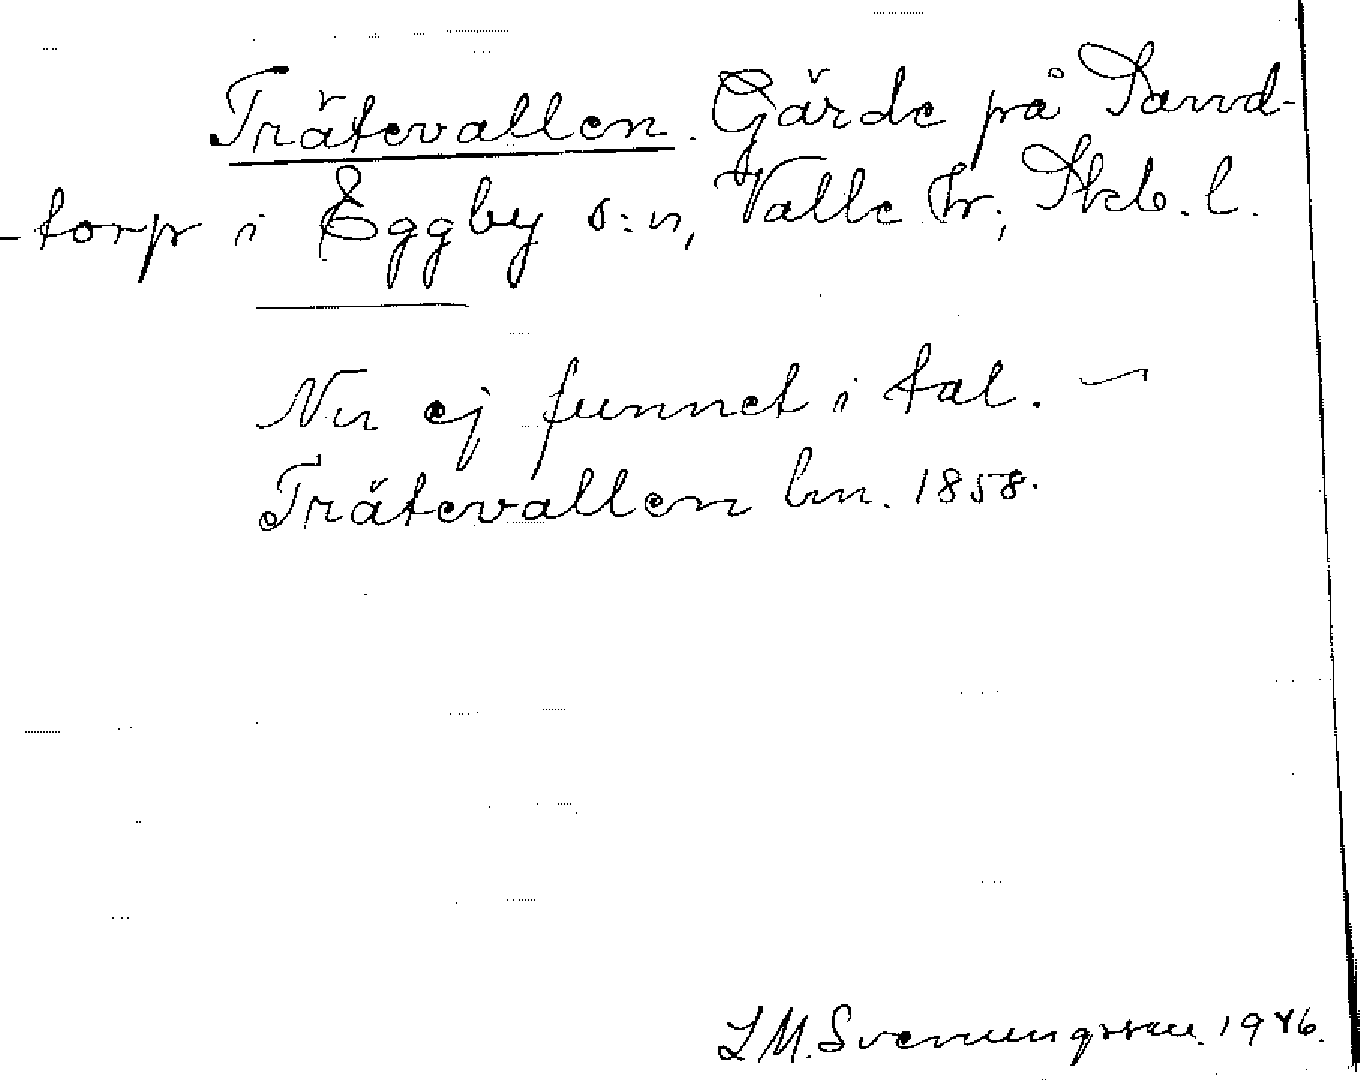 Trätevallen. Gärde på Sand-
torp i Eggby s:n, Valle hr; Skb. l.
Nu ej funnet i tal. –
Trätevallen lm. 1858.
S.M. Svenungsson. 1946.